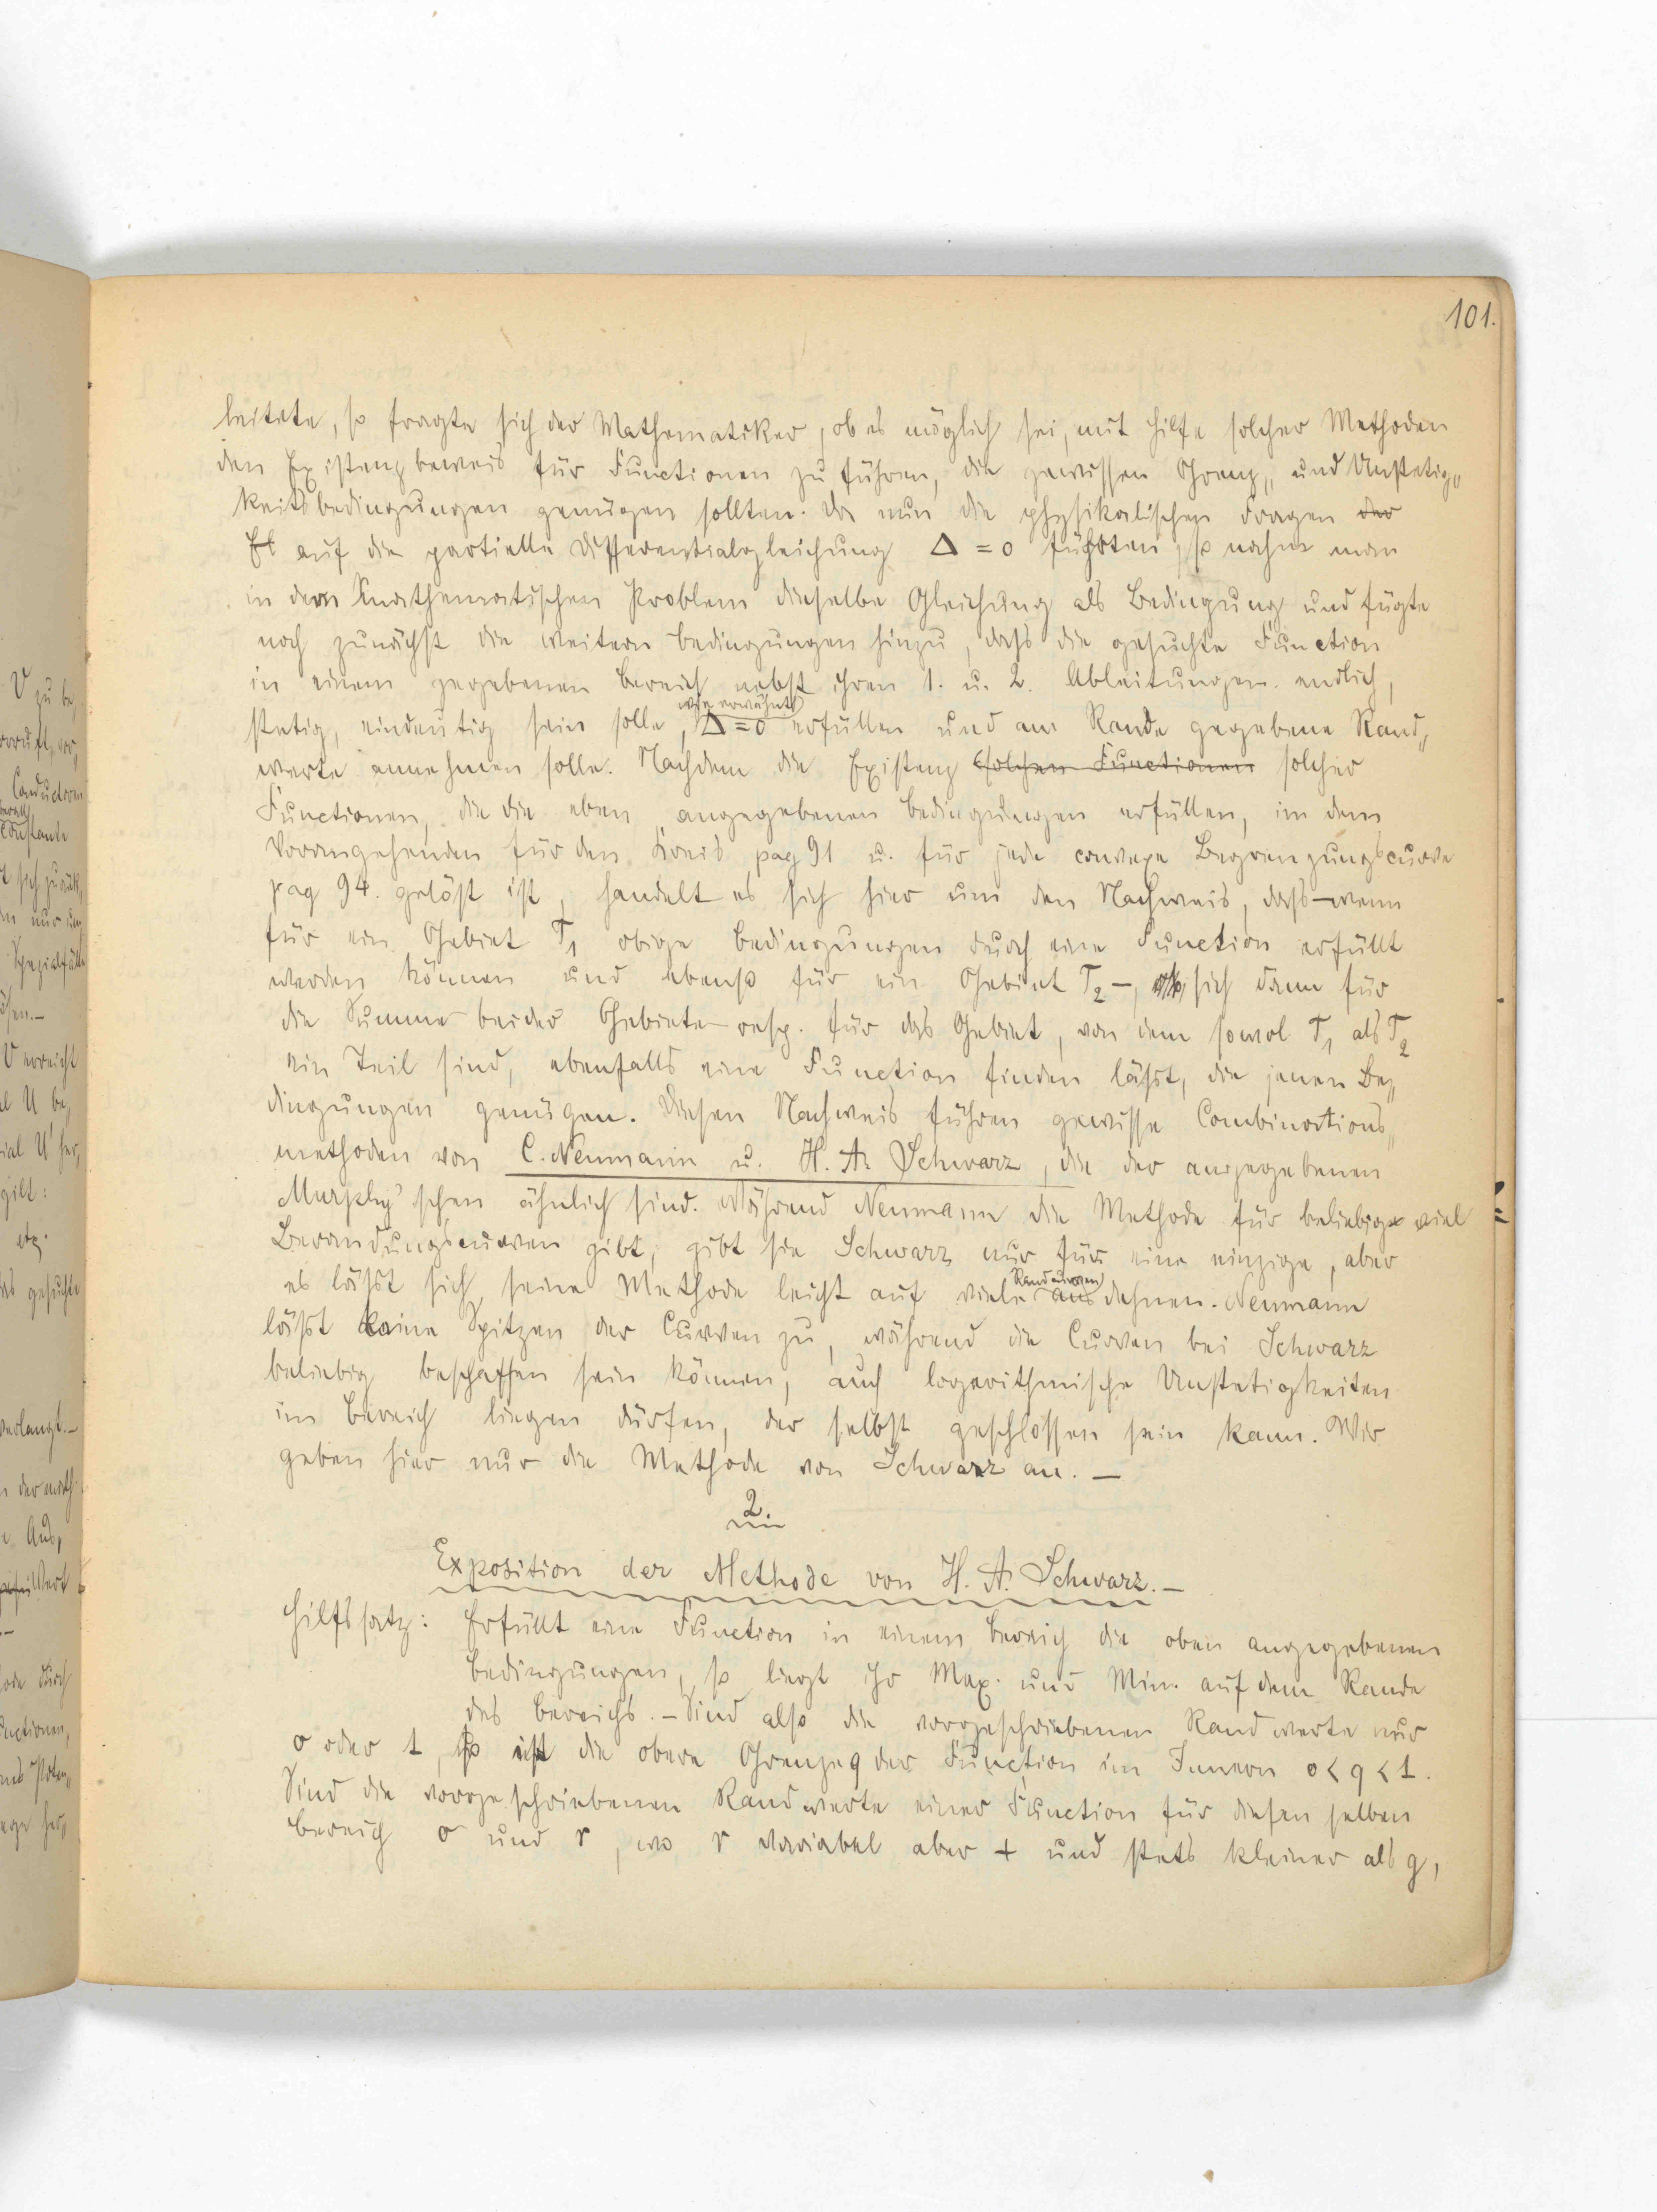 101.
leitete, so fragte sich der Mathematiker, ob es möglich sei, mit Hilfe solcher Methoden
den Existenzbeweis für Functionen zu führen, die gewissen Grenz„ und Unstetig„
keitsbedingungen genügen sollten. Da nun die physikalischen Fragen der
Et auf die partielle Differentialgleichung Δ = 0 führten, so nahm man
in dem mathematischen Problem dieselbe Gleichung als Bedingung und fügte
noch zunächst die weitern Bedingungen hinzu, dass die gesuchte Function
in einem gegebenen Bereich nebst ihren 1. u. 2. Ableitungen endlich,
wie erwähnt
stetig, eindeutig sein solle, Δ = 0 erfüllen und am Rande gegebene Rand„
werte annehmen solle. Nachdem die Existenz solchen Functionen solcher
Functionen, die die eben angegebenen Bedingungen erfüllen, im dem
Vorangehenden für den Kreis pag 91 u. für jede convexe Begrenzungscurve
pag 94. gelöst ist, handelt es sich hier um den Nachweis, dass – wenn
für ein Gebiet T₁ obige Bedingungen durch eine Function erfüllt
werden können und ebenso für ein Gebiet T₂ –, sich dann für
die Summe beider Gebiete resp. für das Gebiet, von dem sowol T₁ als T₂
ein Teil sind, ebenfalls eine Function finden lässt, die jenen Be„
dingungen genügen. Diesen Nachweis führen gewisse Combinations„
methoden von C. Neumann u. H. A. Schwarz, die der angegebenen
Murphy'schen ähnlich sind. Während Neumann die Methode für beliebig viel
Berandungscurven gibt, gibt sie Schwarz nur für eine einzige, aber
Randcurven
es lässt sich seine Methode leicht auf viele ausdehnen. Neumann
lässt keine Spitzen der Curven zu, während die Curven bei Schwarz
beliebig beschaffen sein können, auch logarithmische Unstetigkeiten
im Bereich liegen dürfen, der selbst geschlossen sein kann. Wir
geben hier nur die Methode von Schwarz an. –
2.
Exposition der Methode von H. A. Schwarz. –
Hilfssatz: Erfüllt eine Function in einem Bereich die oben angegebenen
Bedingungen, so liegt ihr Max. und Min. auf dem Rande
des Bereichs. – Sind also die vorgeschriebenen Randwerte nur
0 oder 1, so ist die obere Grenze q der Function im Innern 0 < q < 1.
Sind die vorgeschriebenen Randwerte einer Function für diesen selben
Bereich 0 und r, wo r variabel aber + und stets kleiner als g,